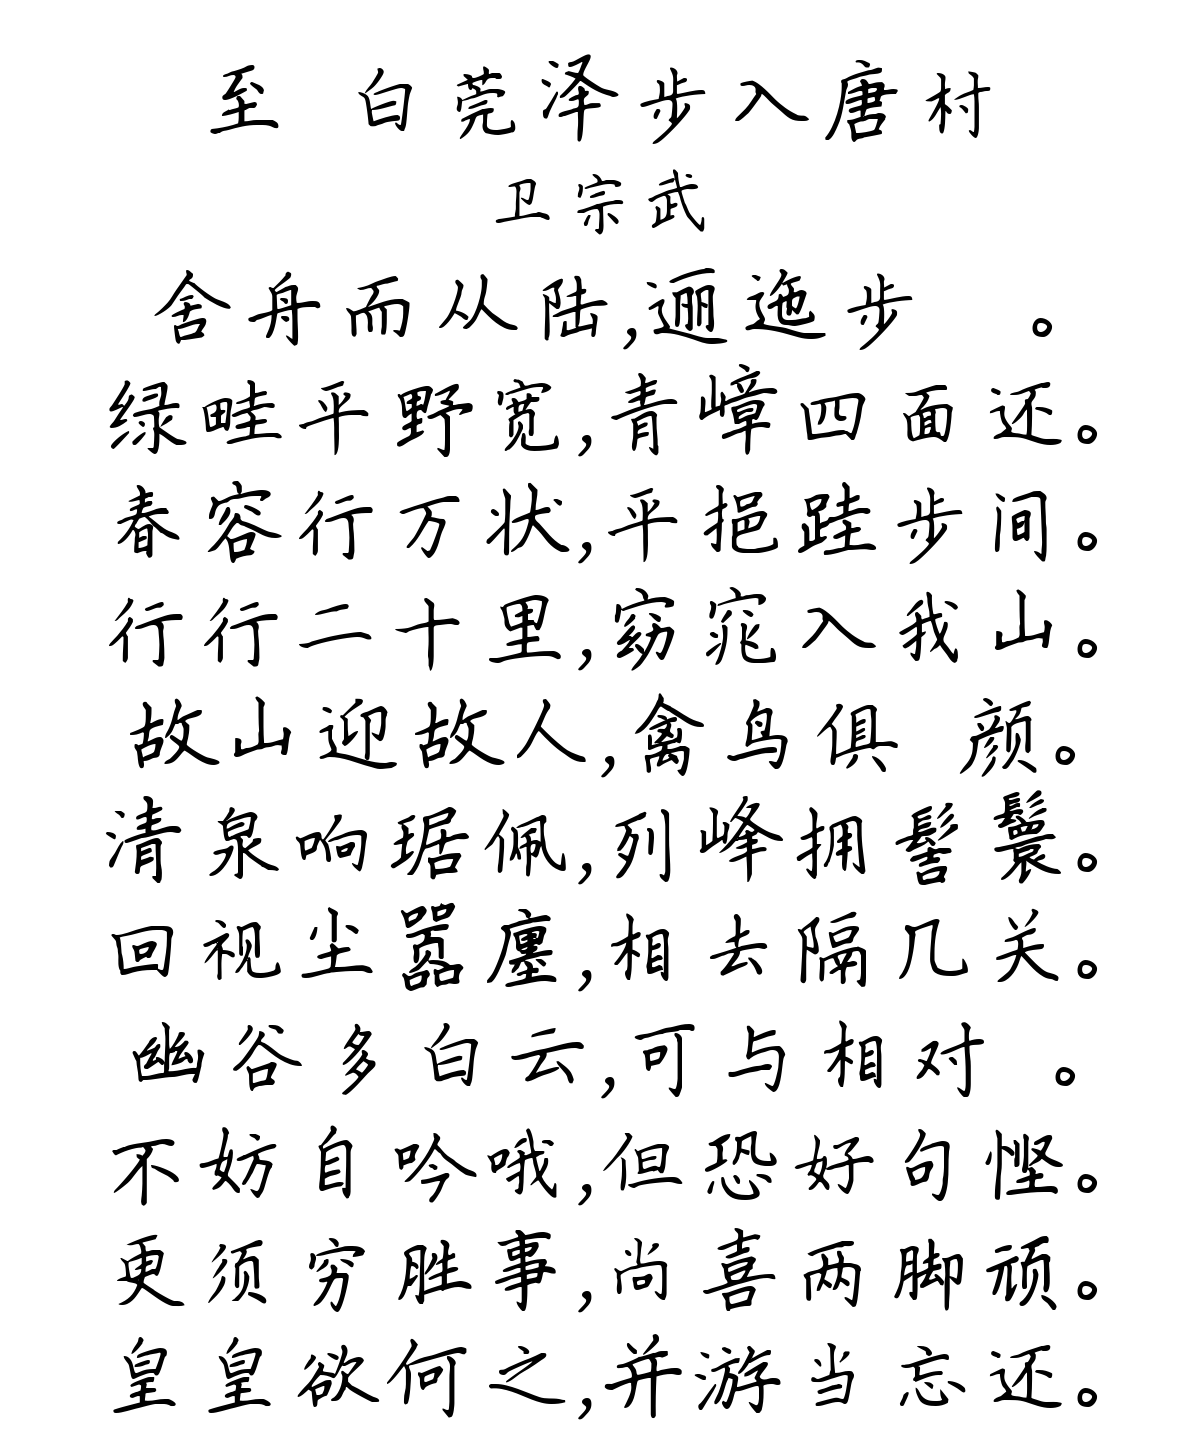 至 白莞泽步入唐村
卫宗武
舍舟而从陆,逦迤步 。
绿畦平野宽,青嶂四面还。
春容行万状,平挹跬步间。
行行二十里,窈窕入我山。
故山迎故人,禽鸟俱 颜。
清泉响琚佩,列峰拥髻鬟。
回视尘嚣廛,相去隔几关。
幽谷多白云,可与相对 。
不妨自吟哦,但恐好句悭。
更须穷胜事,尚喜两脚顽。
皇皇欲何之,并游当忘还。